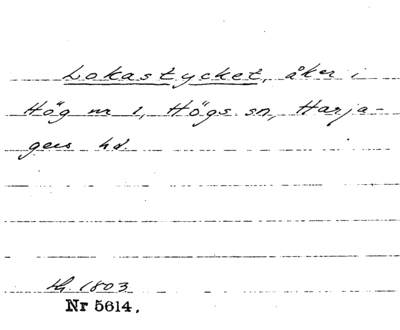 Lokastycket, åker i
Hög nr 1, Högs sn, Harja-
gers hd.
1803
Nr 5614.